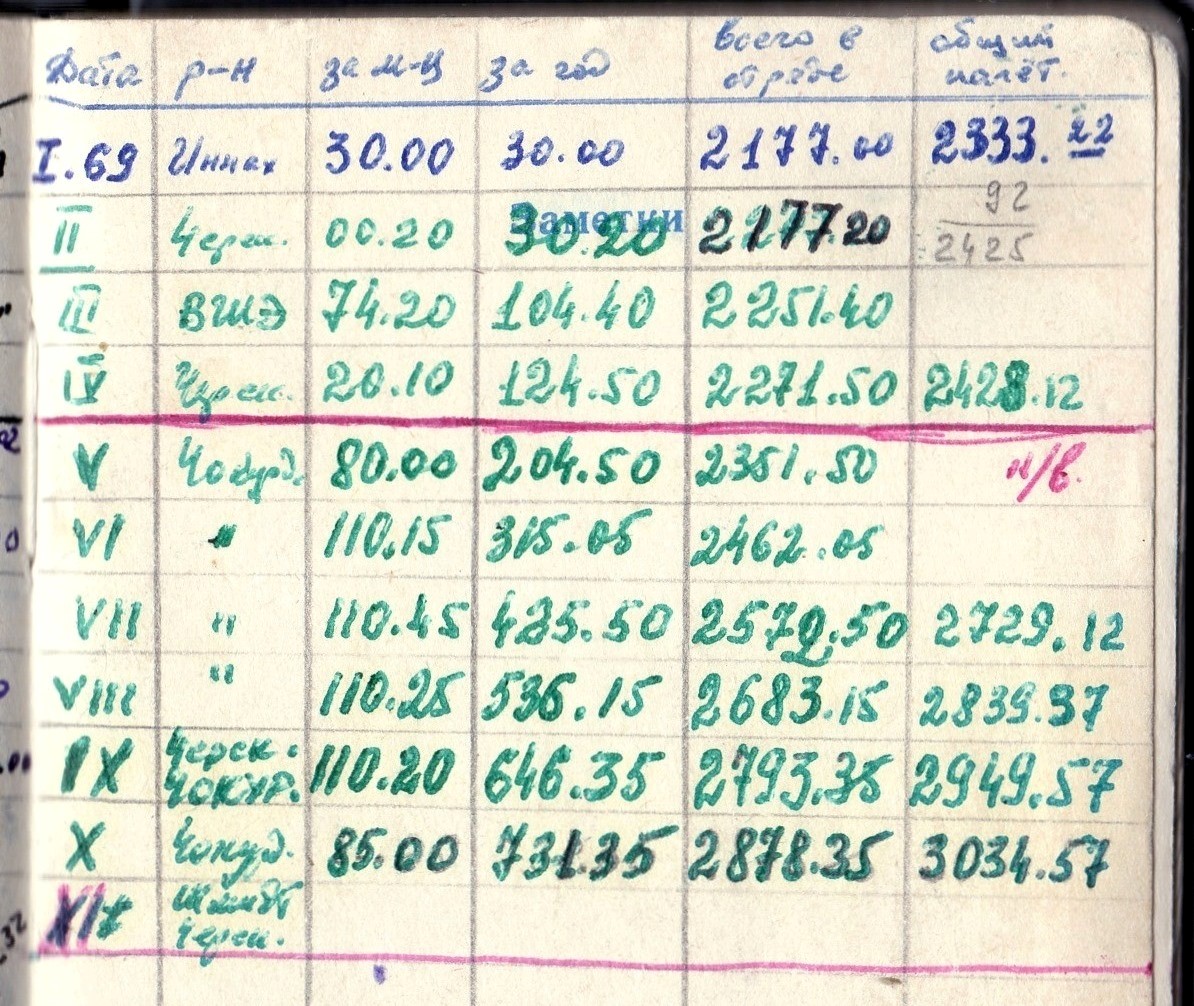 Дата р-н за м-ц за год всего в отряде общий налёт.
I.69 Иннах 30.00 30.00 2177.00 2333.22
92
II Черск. 00.20 30.20 217720 2425
Заметки
III ВШЭ 74.20 104.40 2251.40
IV Черск. 20.10 124.50 2271.50 2428.12
V Чокурд. 80.00 204.50 2351.50 н/в.
VI " 110.15 315.05 2462.05
VII " 110.45 425.50 2572.50 2729.12
VIII " 110.25 536.15 2683.15 2839.37
IX Черск. Чокур. 110.20 646.35 2793.35 2949.57
X Чокурд. 85.00 731.35 2878.35 3034.57
XI Шмидт
Черск.